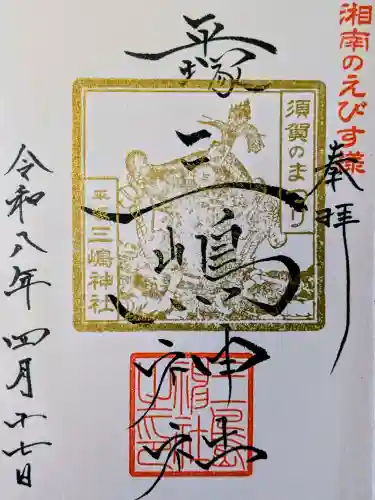 湘南のえびす様
奉拝
須賀のまつり
平塚
三嶋神社
平塚
三嶋神社
三島神社之印
令和八年四月十七日